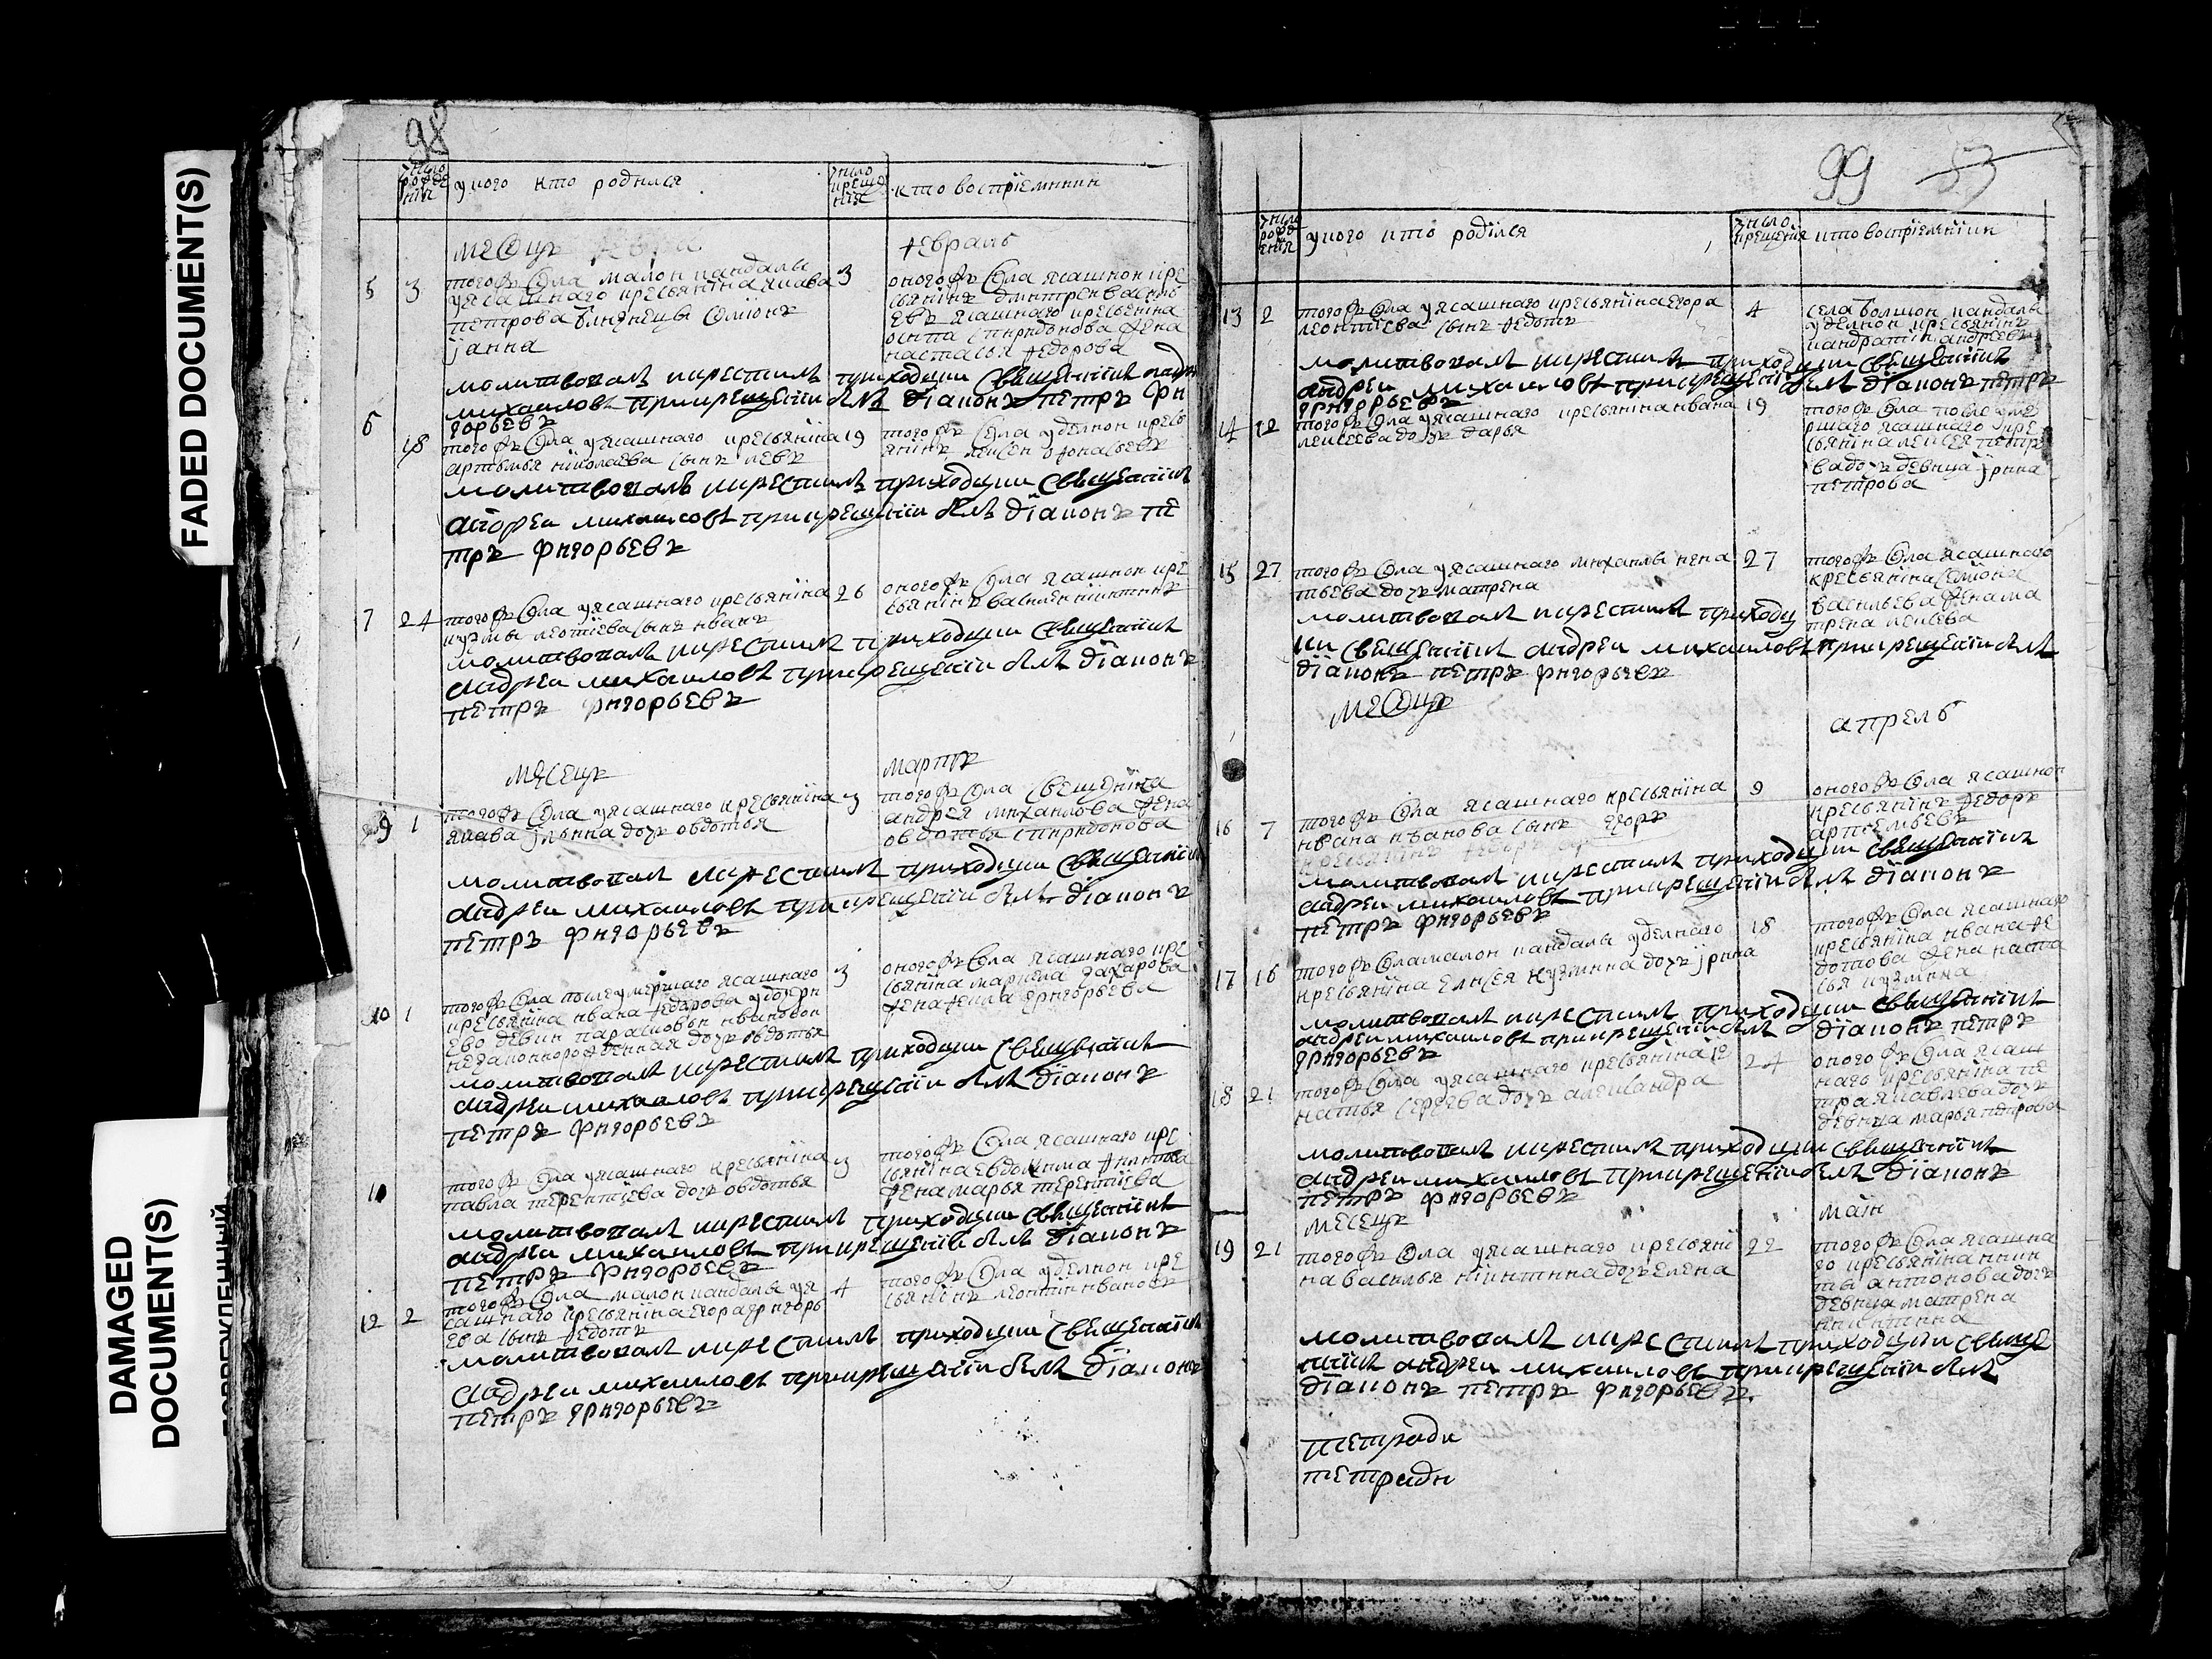 FADED DOCUMENT(S)
DAMAGED
DOCUMENT(S)
98
число
рожде
нія
у кого кто родился
число
креще
нія
кто воспріемники
месецъ
февраль
5 3
того жъ села малой кандалы
у ясашнаго крестьянина якова
петрова близнецы семіонъ
іанна
3
оного жъ села ясашной кре
стьянинъ дмитреи василь
евъ ясашнаго крестьянина
осипа спиридонова жена
настасья федорова
молитвовалъ и крестилъ приходцкии священникъ андреи
михаиловъ при крещении былъ діаконъ петръ гри
горьевъ
6
18
того жъ села у ясашнаго крестьянина
артемья николаева сынъ левъ
19
того жъ села уделнои кресть
янинъ алексеи афонасьевъ
молитвовалъ и крестилъ приходцкии священникъ
андреи михаиловъ при крещении былъ діаконъ пе
тръ григорьевъ
7 24
того жъ села у ясашнаго крестьянина
кузмы леонтіева сынъ иванъ
26
оного жъ села ясашнои кре
стьянинъ василеи никитинъ
молитвовалъ и крестилъ приходцкии священникъ
андреи михаиловъ при крещении былъ діаконъ
петръ григорьевъ
месецъ
мартъ
9 1
того жъ села у ясашнаго крестьянина
якова ильина дочь овдотья
3
того жъ села священника
андрея михаилова жена
овдотья спиридонова
молитвовалъ и крестилъ приходцкии священникъ
андреи михаиловъ при крещении былъ діаконъ
петръ григорьевъ
10 1
того жъ села после умершаго ясашнаго
крестьянина ивана федорова у дочери
ево девки парасковьи ивановои
незаконнорожденная дочь овдотья
3
оного жъ села ясашнаго кре
стьянина маркела захарова
жена фекла григорьева
молитвовалъ и крестилъ приходцкии священникъ
андреи михаиловъ при крещении былъ діаконъ
петръ григорьевъ
11
того жъ села у ясашнаго крестьянина
павла терентіева дочь овдотья
3
того жъ села ясашнаго кре
стьянина евдокима
жена марья терентіева
молитвовалъ и крестилъ приходцкии священникъ
андреи михаиловъ при крещении былъ діаконъ
петръ григорьевъ
12 2
того жъ села малои кандалы у я
сашнаго крестьянина егора григорь
ева сынъ федотъ
4
того жъ села уделнои кре
стьянинъ леонтии ивановъ
молитвовалъ и крестилъ приходцкии священникъ
андреи михаиловъ при крещении былъ діаконъ
петръ григорьевъ
99 53
число
рожд
енія
у кого кто родился
число
крещенія
кто воспріемники
13 2
того жъ села у ясашнаго крестьянина егора
леонтіева сынъ федотъ
4
села болшои кандалы
уделнои крестьянинъ
кандратии андреевъ
молитвовалъ и крестилъ приходцкии священникъ
андреи михаиловъ при крещении былъ діаконъ петръ
григорьевъ
14 12
того жъ села у ясашнаго крестьянина ивана
алексеева дочь дарья
19
того жъ села после уме
ршаго ясашнаго кре
стьянина алексея петро
ва дочь девица ірина
петрова
15 27
того жъ села у ясашнаго михаилы игна
тьева дочь матрена
27
того жъ села ясашнаго
крестьянина семіона
васильева жена ма
трена алексева
молитвовалъ и крестилъ приходц
кии священникъ андреи михаиловъ при крещении былъ
діаконъ петръ григорьевъ
месецъ
апрель
16 7
того жъ села ясашнаго крестьянина
ивана иванова сынъ егоръ
9
оного жъ села ясашнои
крестьянинъ федоръ
артемьевъ
молитвовалъ и крестилъ приходцкии священникъ
андреи михаиловъ при крещении былъ діаконъ
петръ григорьевъ
17 16
того жъ села малои кандалы уделнаго
крестьянина елисея кузмина дочь ірина
18
того жъ села ясашнаго
крестьянина ивана фе
дотова жена наста
сья кузмина
молитвовалъ и крестилъ приходцкии священникъ
андреи михаиловъ при крещении былъ діаконъ петръ
григорьевъ
18 21
того жъ села у ясашнаго крестьянина іг
натья сергева дочь александра
24
оного жъ села ясаш
наго крестьянина пе
тра яковлева дочь
девица марья петрова
молитвовалъ и крестилъ приходцкии священникъ
андреи михаиловъ при крещении былъ діаконъ
петръ григорьевъ
месецъ
маіи
19 21
того жъ села у ясашнаго крестьяни
на василья никитина дочь елена
22
того жъ села ясашна
го крестьянина ники
ты антонова дочь
девица матрена
никитина
молитвовалъ и крестилъ приходцкии свяще
нникъ андреи михаиловъ при крещении былъ
діаконъ петръ григорьевъ
тетради
тетради